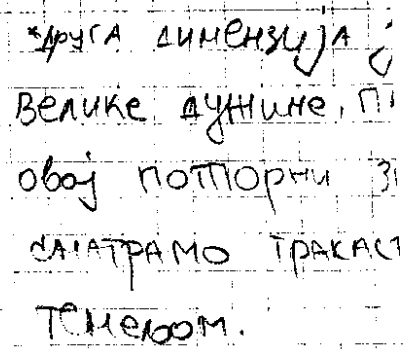 *друга димензија ј
велике дужине, п
овај потпорни з
сматрамо тракаст
темељом.